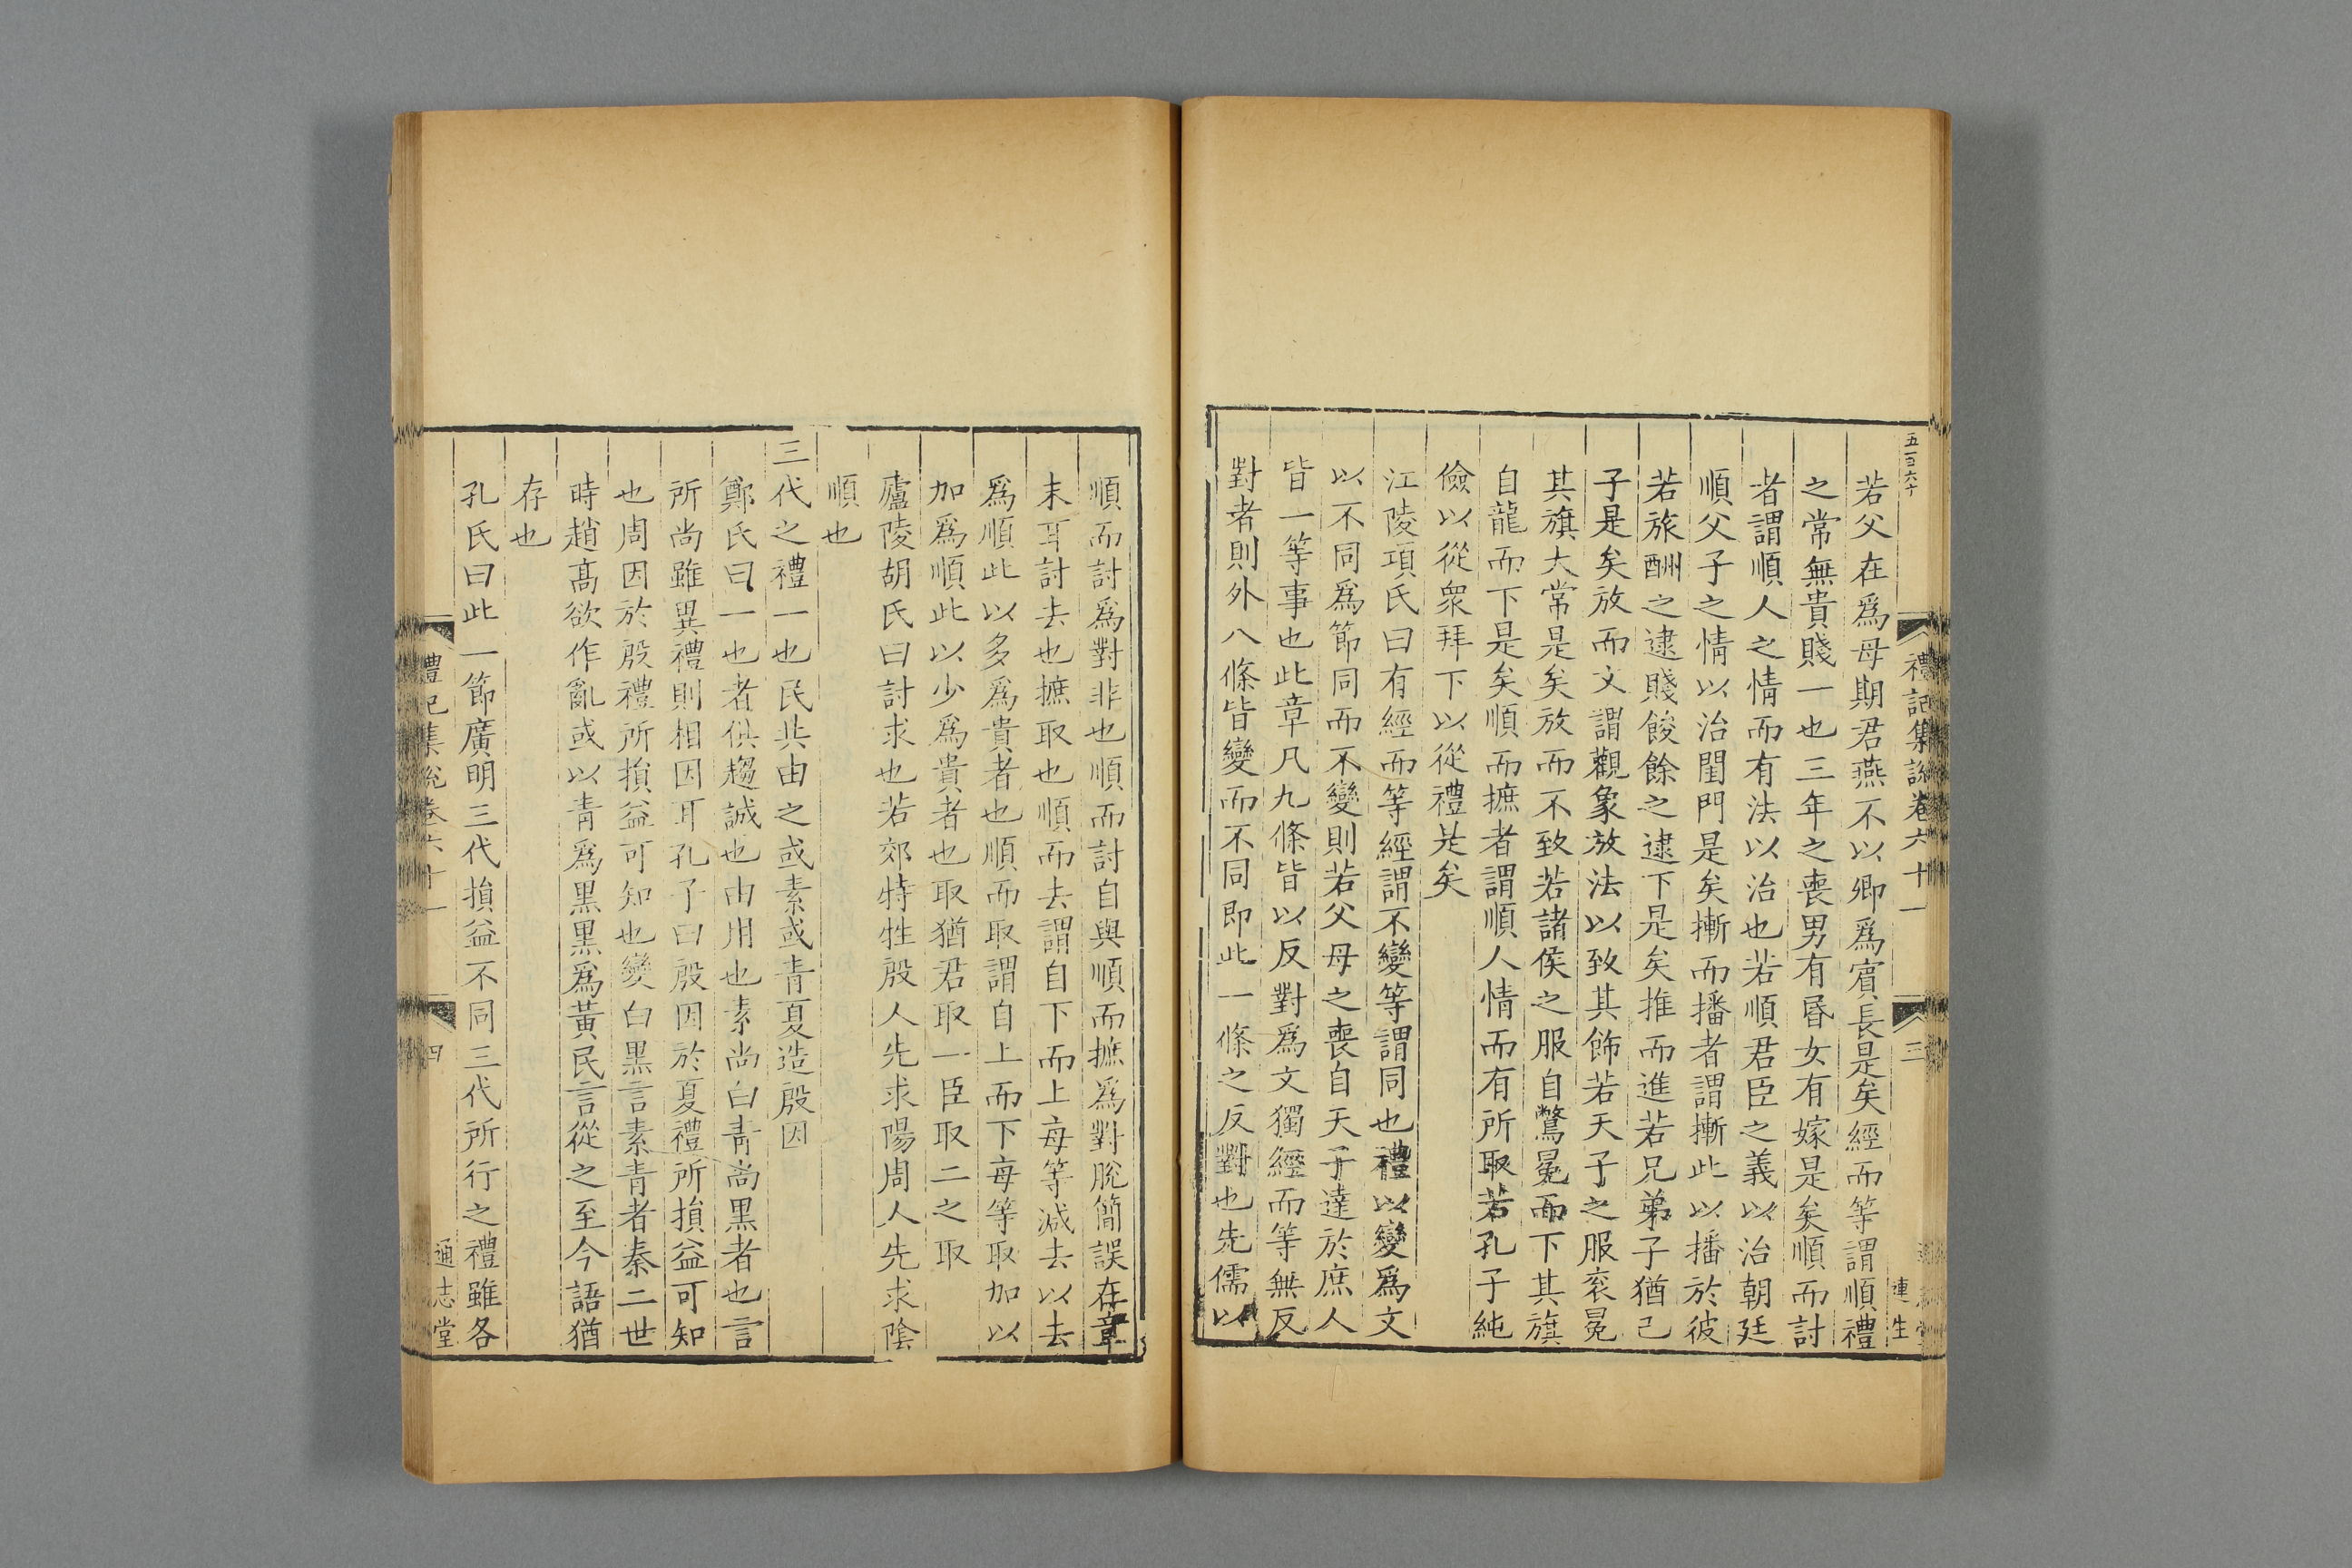 五百六十
禮記集說卷六十一
三
連生
若父在爲母期君燕不以卿爲賓長是矣經而等謂順禮
之常無貴賤一也三年之喪男有昏女有嫁是矣順而討
者謂順人之情而有法以治也若順君臣之義以治朝廷
順父子之情以治閨門是矣摲而播者謂摲此以播於彼
若旅酬之逮賤餕餘之逮下是矣推而進若兄弟子猶己
子是矣放而文謂觀象放法以致其飾若天子之服衮冕
其旗大常是矣放而不致若諸侯之服自鷩冕而下其旗
自龍而下是矣順而摭者謂順人情而有所取若孔子純
儉以從衆拜下以從禮是矣
江陵項氏曰有經而等經謂不變等謂同也禮以變爲文
以不同爲節同而不變則若父母之喪自天子達於庶人
皆一等事也此章凡九條皆以反對爲文獨經而等無反
對者則外八條皆變而不同即此一條之反對也先儒以
順而討爲對非也順而討自與順而摭爲對脫簡誤在章
末耳討去也摭取也順而去謂自下而上每等減去以去
爲順此以多爲貴者也順而取謂自上而下每等取加以
加爲順此以少爲貴者也取猶君取一臣取二之取
廬陵胡氏曰討求也若郊特牲殷人先求陽周人先求陰
順也
三代之禮一也民共由之或素或青夏造殷因
鄭氏曰一也者俱趨誠也由用也素尚白青尚黑者也言
所尚雖異禮則相因耳孔子曰殷因於夏禮所損益可知
也周因於殷禮所損益可知也變白黑言素青者秦二世
時趙高欲作亂或以青爲黑黑爲黃民言從之至今語猶
存也
孔氏曰此一節廣明三代損益不同三代所行之禮雖各
禮記集說卷六十一
四
通志堂